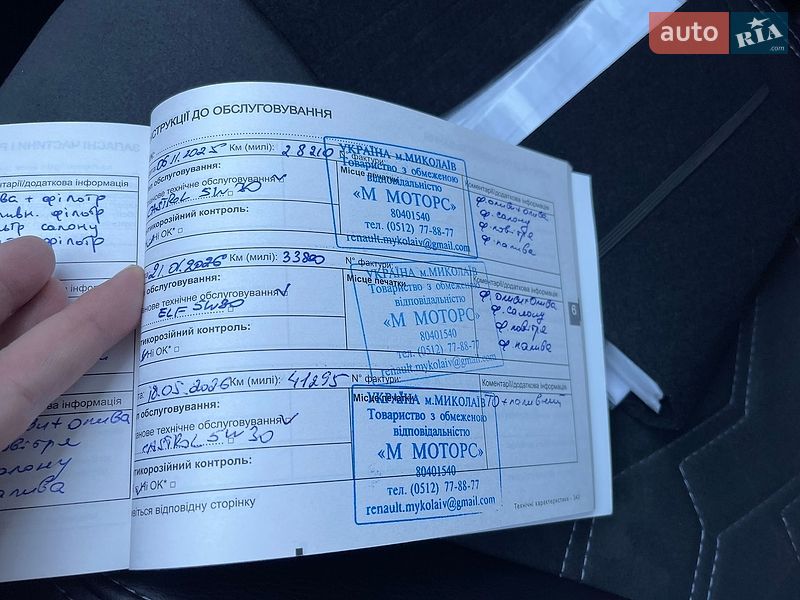 auto RIA.com
СТРУКЦІЇ ДО ОБСЛУГОВУВАННЯ
06.11.2025 Км (милі): 28210 N° фактури:
обслуговування:
Місце печатки
Коментарі/додаткова інформація
нове технічне обслуговування V
CASTROL 5W30
тикорозійний контроль:
Ні OK* □
УКРАЇНА м.МИКОЛАЇВ
Товариство з обмеженою
відповідальністю
«М МОТОРС»
80401540
тел. (0512) 77-88-77
renault.mykolaiv@gmail.com
ф. оливи+олива
ф. салону
ф. повітря
ф. палива
21.01.2026 Км (милі): 33800 N° фактури:
п обслуговування:
Місце печатки
Коментарі/додаткова інформація
нове технічне обслуговування V
ELF 5W30
тикорозійний контроль:
Ні OK* □
УКРАЇНА м.МИКОЛАЇВ
Товариство з обмеженою
відповідальністю
«М МОТОРС»
80401540
тел. (0512) 77-88-77
renault.mykolaiv@gmail.com
ф. оливи+олива
ф. салону
ф повітря
ф. палива
та: 12.05.2026 Км (милі): 41295 N° фактури:
п обслуговування:
Місце печатки
Коментарі/додаткова інформація
нове технічне обслуговування V
CASTROL 5W30
тикорозійний контроль:
Ні OK* □
УКРАЇНА м.МИКОЛАЇВ
Товариство з обмеженою
відповідальністю
«М МОТОРС»
80401540
тел. (0512) 77-88-77
renault.mykolaiv@gmail.com
ТО + паливний
віться відповідну сторінку
6
Технічні характеристики -
ЗАПАСНІ ЧАСТИНИ
нтарі/додаткова інформація
ва + фільтр
фільтр
салону
фільтр
ва інформація
ві/додаткова інформація
олива
повітря
салону
палива